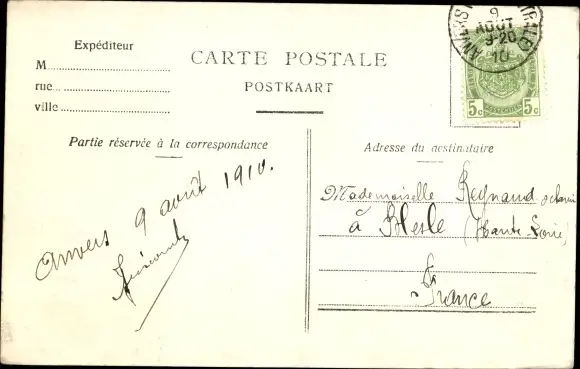 Expéditeur
M
rue
ville
CARTE POSTALE
POSTKAART
9
AOUT
9-20
10
5c 5c
Partie réservée à la correspondance
Adresse du destinataire
Anvers 9 août 1910.
Mademoiselle Reynaud
à Blesle (Haute Loire)
France